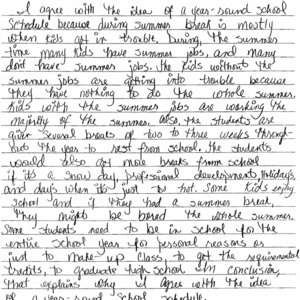 I agree with the idea of a year-round school
schedule because during summer break is mostly
when kids get in trouble. During, the summer
time many kids have summer jobs, and many
dont have summer jobs. the kids without the
summer jobs are getting into trouble because
they have nothing to do the whole summer.
kids with the summer jobs are working the
majority of the summer. also, the students are
given several breaks of two to three weeks through-
out the year to rest from school. the students
would also get more breaks from school
if it's a snow day, professional developments, holidays,
and days when it's just to hot. Some kids enjoy
school and if they had a summer break,
They might be bored the whole summer.
Some students need to be in school for the
entire school year for personal reasons as
just to make-up class, to get the requiremental
credits, to graduate high school. In conclusion,
that explains why I agree with the idea
of a year-round school schedule.